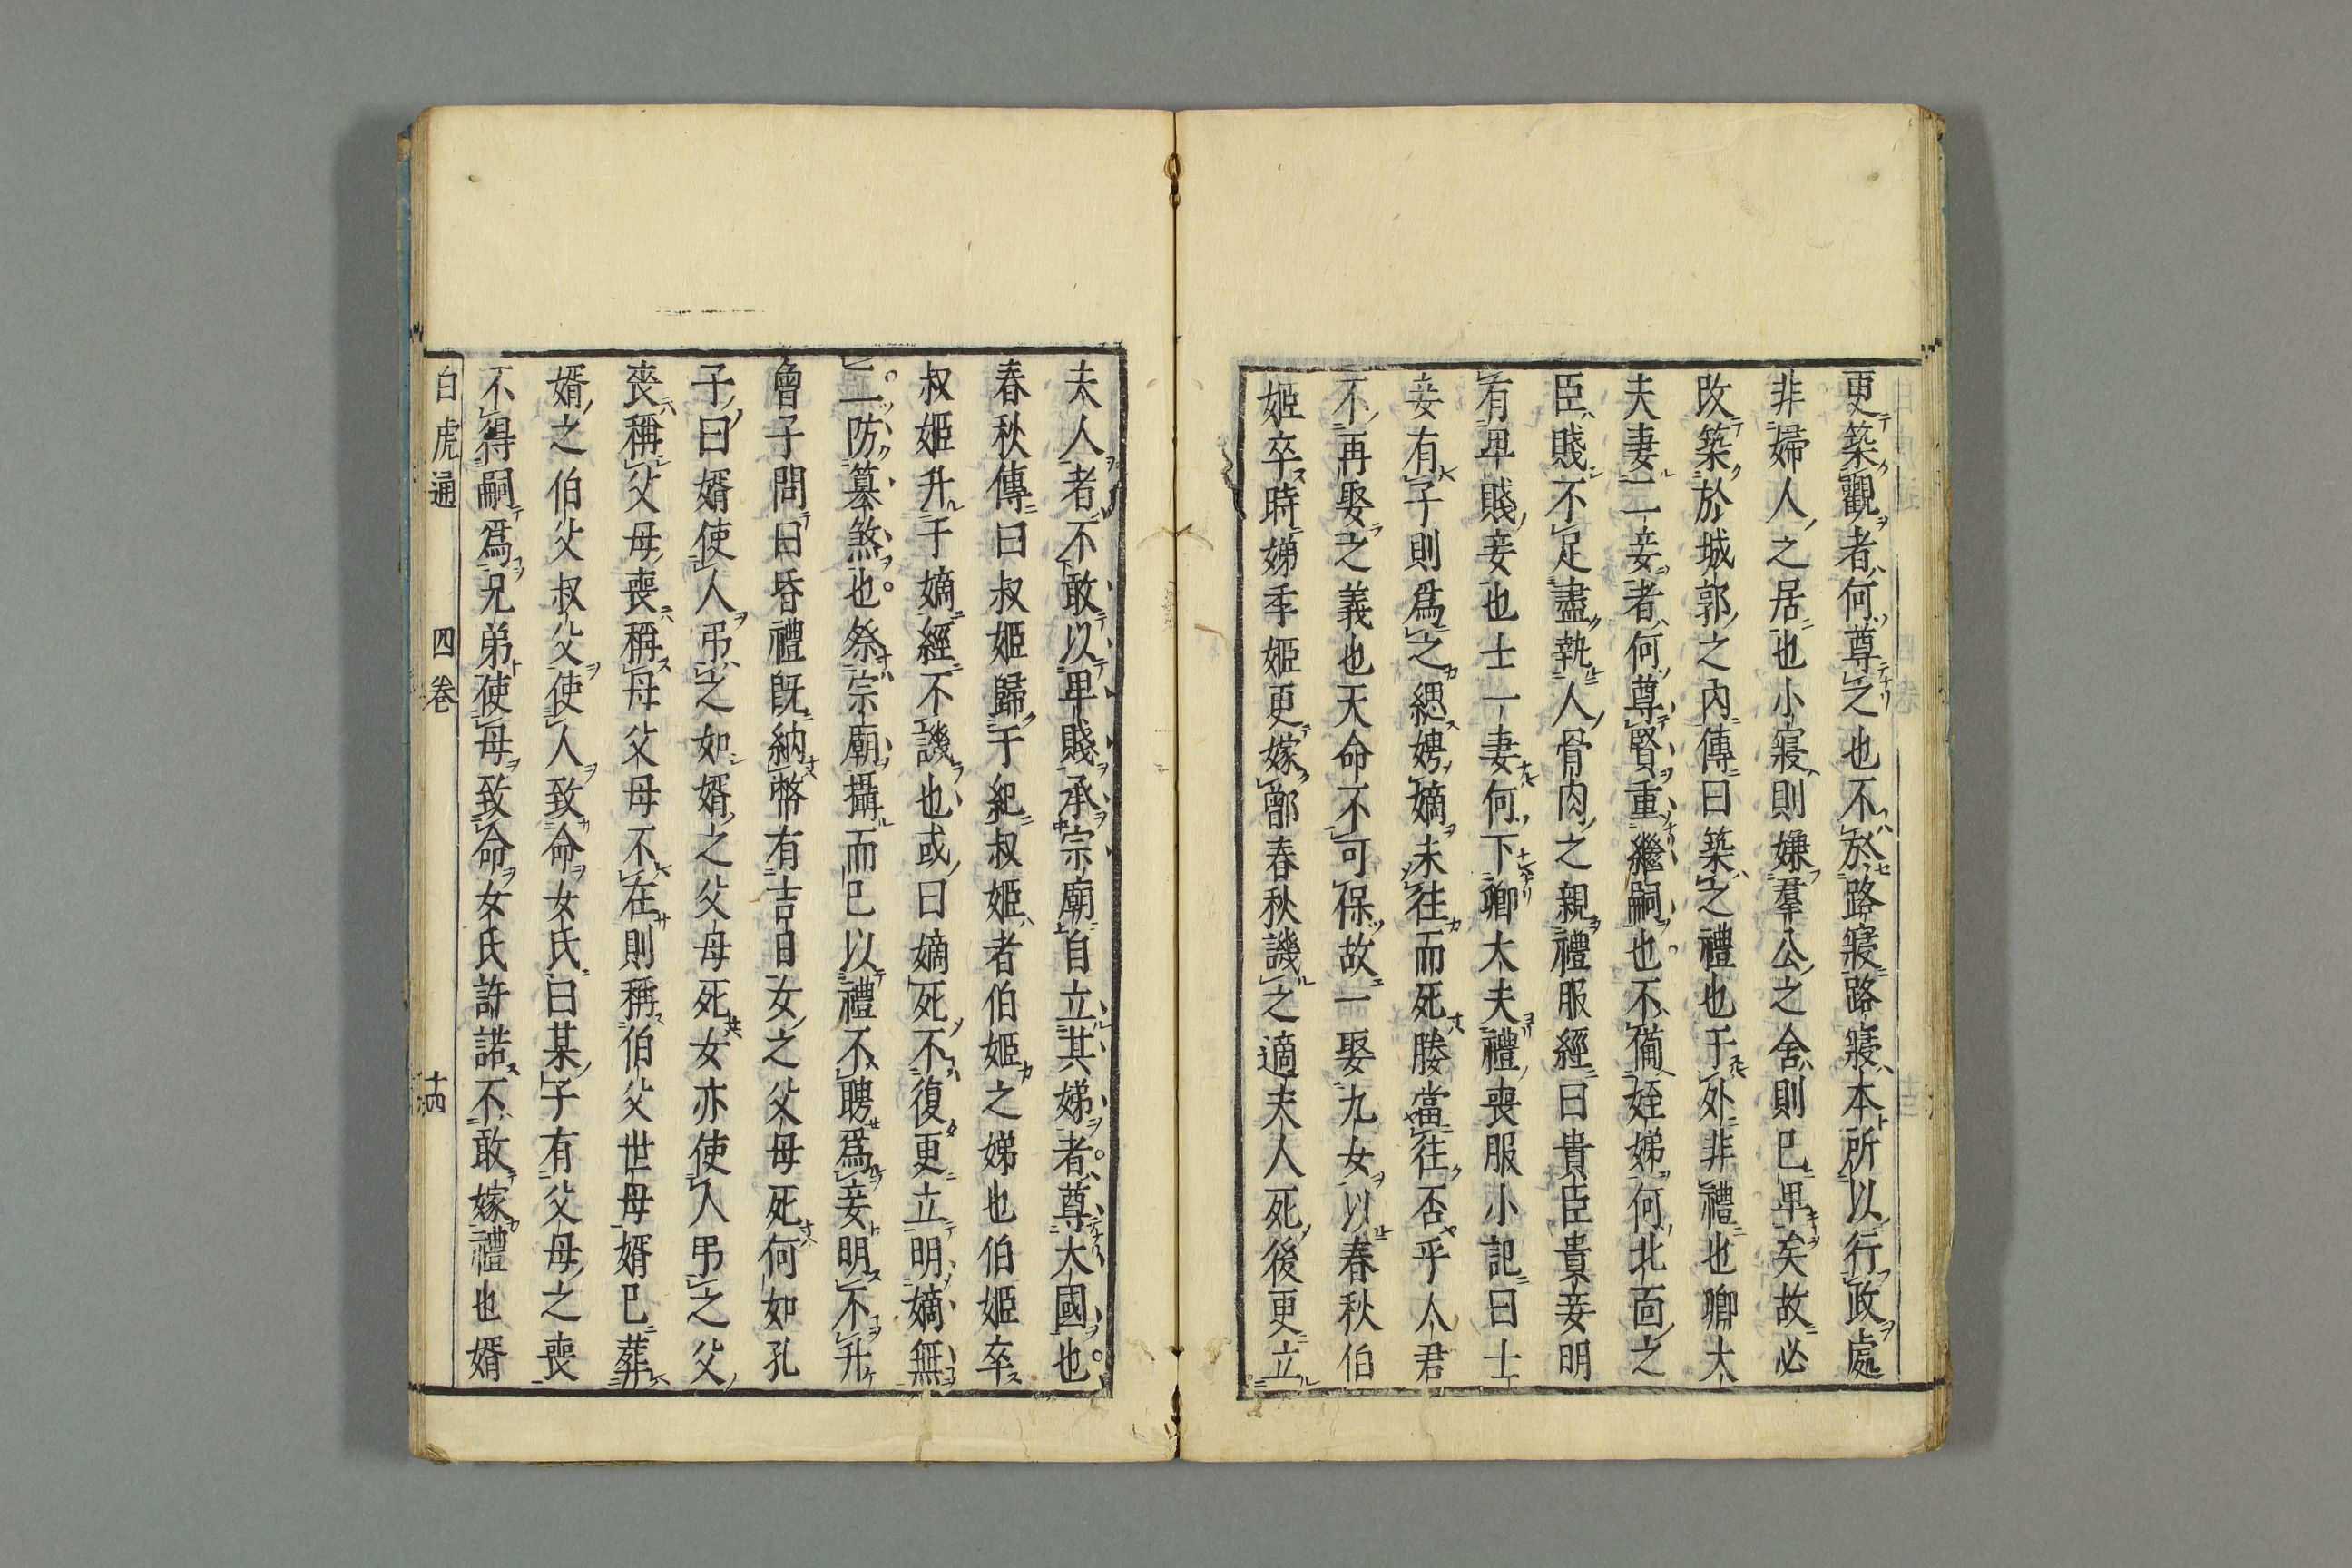 更築觀者何尊之也不於路寢路寢本所以行政處
非婦人之居也小寢則嫌羣公之舍則已卑矣故必
改築於城郭之內傳曰築之禮也于外非禮也卿大
夫妻二妾者何尊賢重繼嗣也不備姪娣何北面之
臣賤不足盡執人骨肉之親禮服經曰貴臣貴妾明
有卑賤妾也士一妻何下卿大夫禮喪服小記曰士
妾有子則爲之緦娉嫡未往而死媵當往否乎人君
不再娶之義也天命不可保故一娶九女以春秋伯
姬卒時娣季姬更嫁鄫春秋譏之適夫人死後更立
夫人者不敢以卑賤承宗廟自立其娣者尊大國也
春秋傳曰叔姬歸于紀叔姬者伯姬之娣也伯姬卒
叔姬升于嫡經不譏也或曰嫡死不復更立明嫡無
二防篡煞也祭宗廟攝而已以禮不聘爲妾明不升
曾子問曰昏禮既納幣有吉日女之父母死何如孔
子曰婿使人弔之如婿之父母死女亦使人弔之父
喪稱父母喪稱母父母不在則稱伯父世母婿已葬
婿之伯父叔父使人致命女氏曰某子有父母之喪
不得嗣爲兄弟使母致命女氏許諾不敢嫁禮也婿
白虎通　四卷　十四